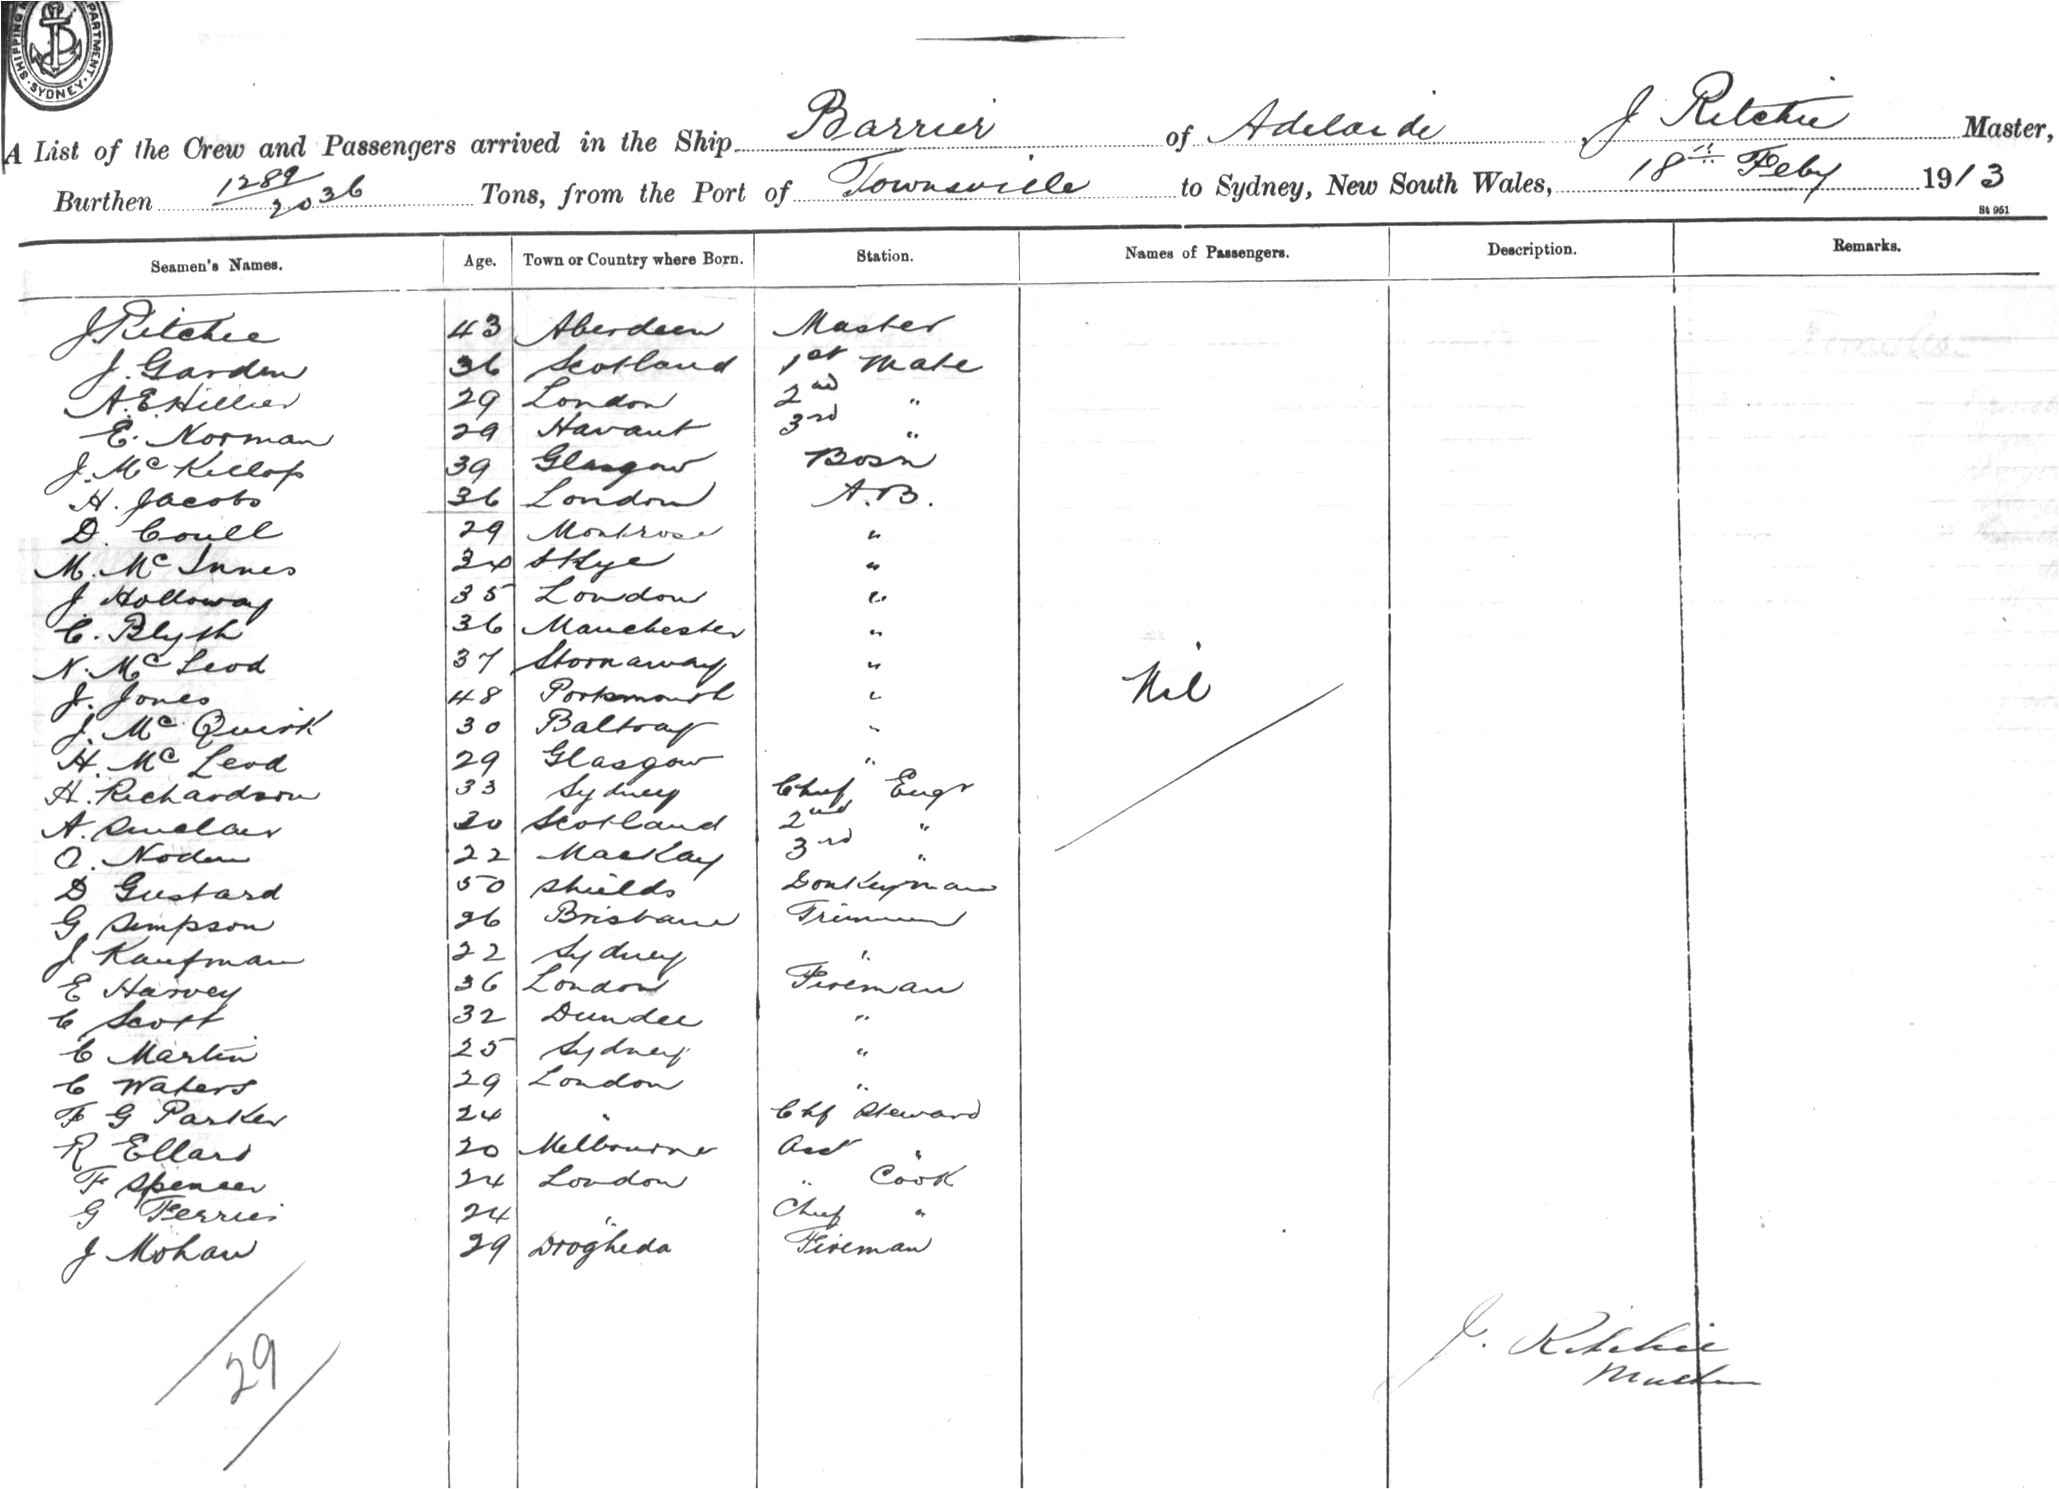 SHIPPING DEPARTMENT SYDNEY
A List of the Crew and Passengers arrived in the Ship Barrier of Adelaide, J Ritchie Master,
Burthen 1289/2036 Tons, from the Port of Townsville to Sydney, New South Wales, 18th Feby 1913
St 951
Seamen's Names. Age. Town or Country where Born. Station. Names of Passengers. Description. Remarks.
J Ritchie 43 Aberdeen Master
J. Garden 36 Scotland 1st Mate
A.E. Hillier 29 London 2nd "
E. Norman 29 Havant 3rd "
J. McKillop 39 Glasgow Bosn
H. Jacobs 36 London A.B.
D. Coull 29 Montrose "
M. McInnes 34 Skye "
J. Holloway 35 London "
C. Blyth 36 Manchester "
N. McLeod 37 Stornaway "
J. Jones 48 Portsmouth "
Nil
J. McQuirk 30 Baltray "
H. McLeod 29 Glasgow "
H. Richardson 33 Sydney Chief Engr
A. Sinclair 30 Scotland 2nd "
O. Noden 22 MacKay 3rd "
D Gustard 50 Shields Donkeyman
G Simpson 26 Brisbane Trimmer
J Kaufman 22 Sydney "
E Harvey 36 London Fireman
C Scott 32 Dundee "
C Martin 25 Sydney "
C Waters 29 London "
F G Parker 24 " Chf Steward
R Ellard 20 Melbourne Asst "
F Spencer 24 London " Cook
G Ferries 24 " Chief "
J Mohan 29 Drogheda Fireman
29
J. Ritchie
Master